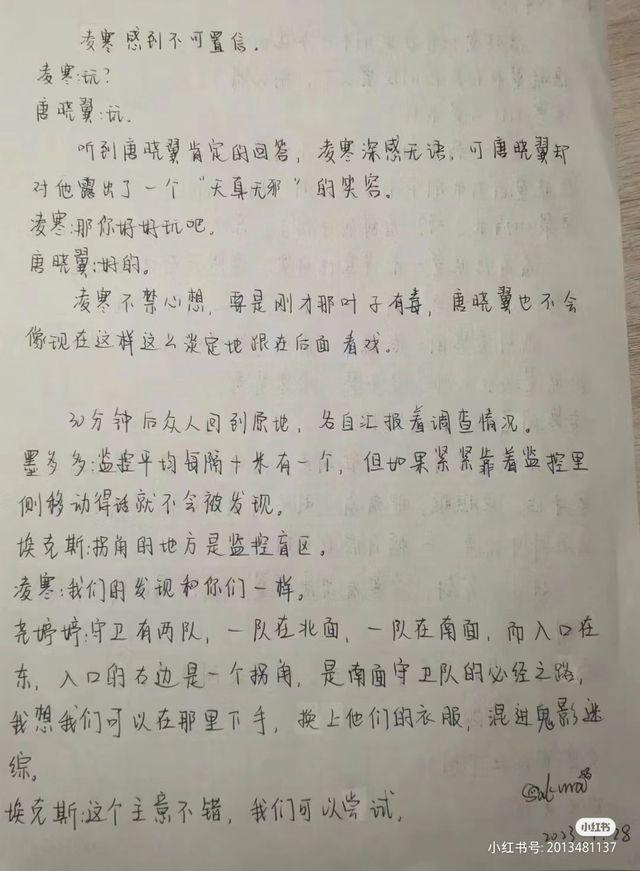 凌寒感到不可置信.
凌寒:玩?
唐晓翼:玩.
听到唐晓翼肯定的回答,凌寒深感无语,可唐晓翼却
对他露出了一个“天真无邪”的笑容。
凌寒:那你好好玩吧.
唐晓翼:好的。
凌寒不禁心想,要是刚才那叶子有毒,唐晓翼也不会
像现在这样这么淡定地跟在后面看戏.
30分钟后众人回到原地,各自汇报着调查情况。
墨多多:监控平均每隔十米有一个,但如果紧紧靠着监控里
侧移动得话就不会被发现。
埃克斯:拐角的地方是监控盲区。
凌寒:我们的发现和你们一样。
尧婷婷:守卫有两队,一队在北面,一队在南面,而入口在
东,入口的右边是一个拐角,是南面守卫队的必经之路,
我想我们可以在那里下手,换上他们的衣服,混进鬼影迷
综。
埃克斯:这个主意不错,我们可以尝试.
小红书
小红书号: 2013481137